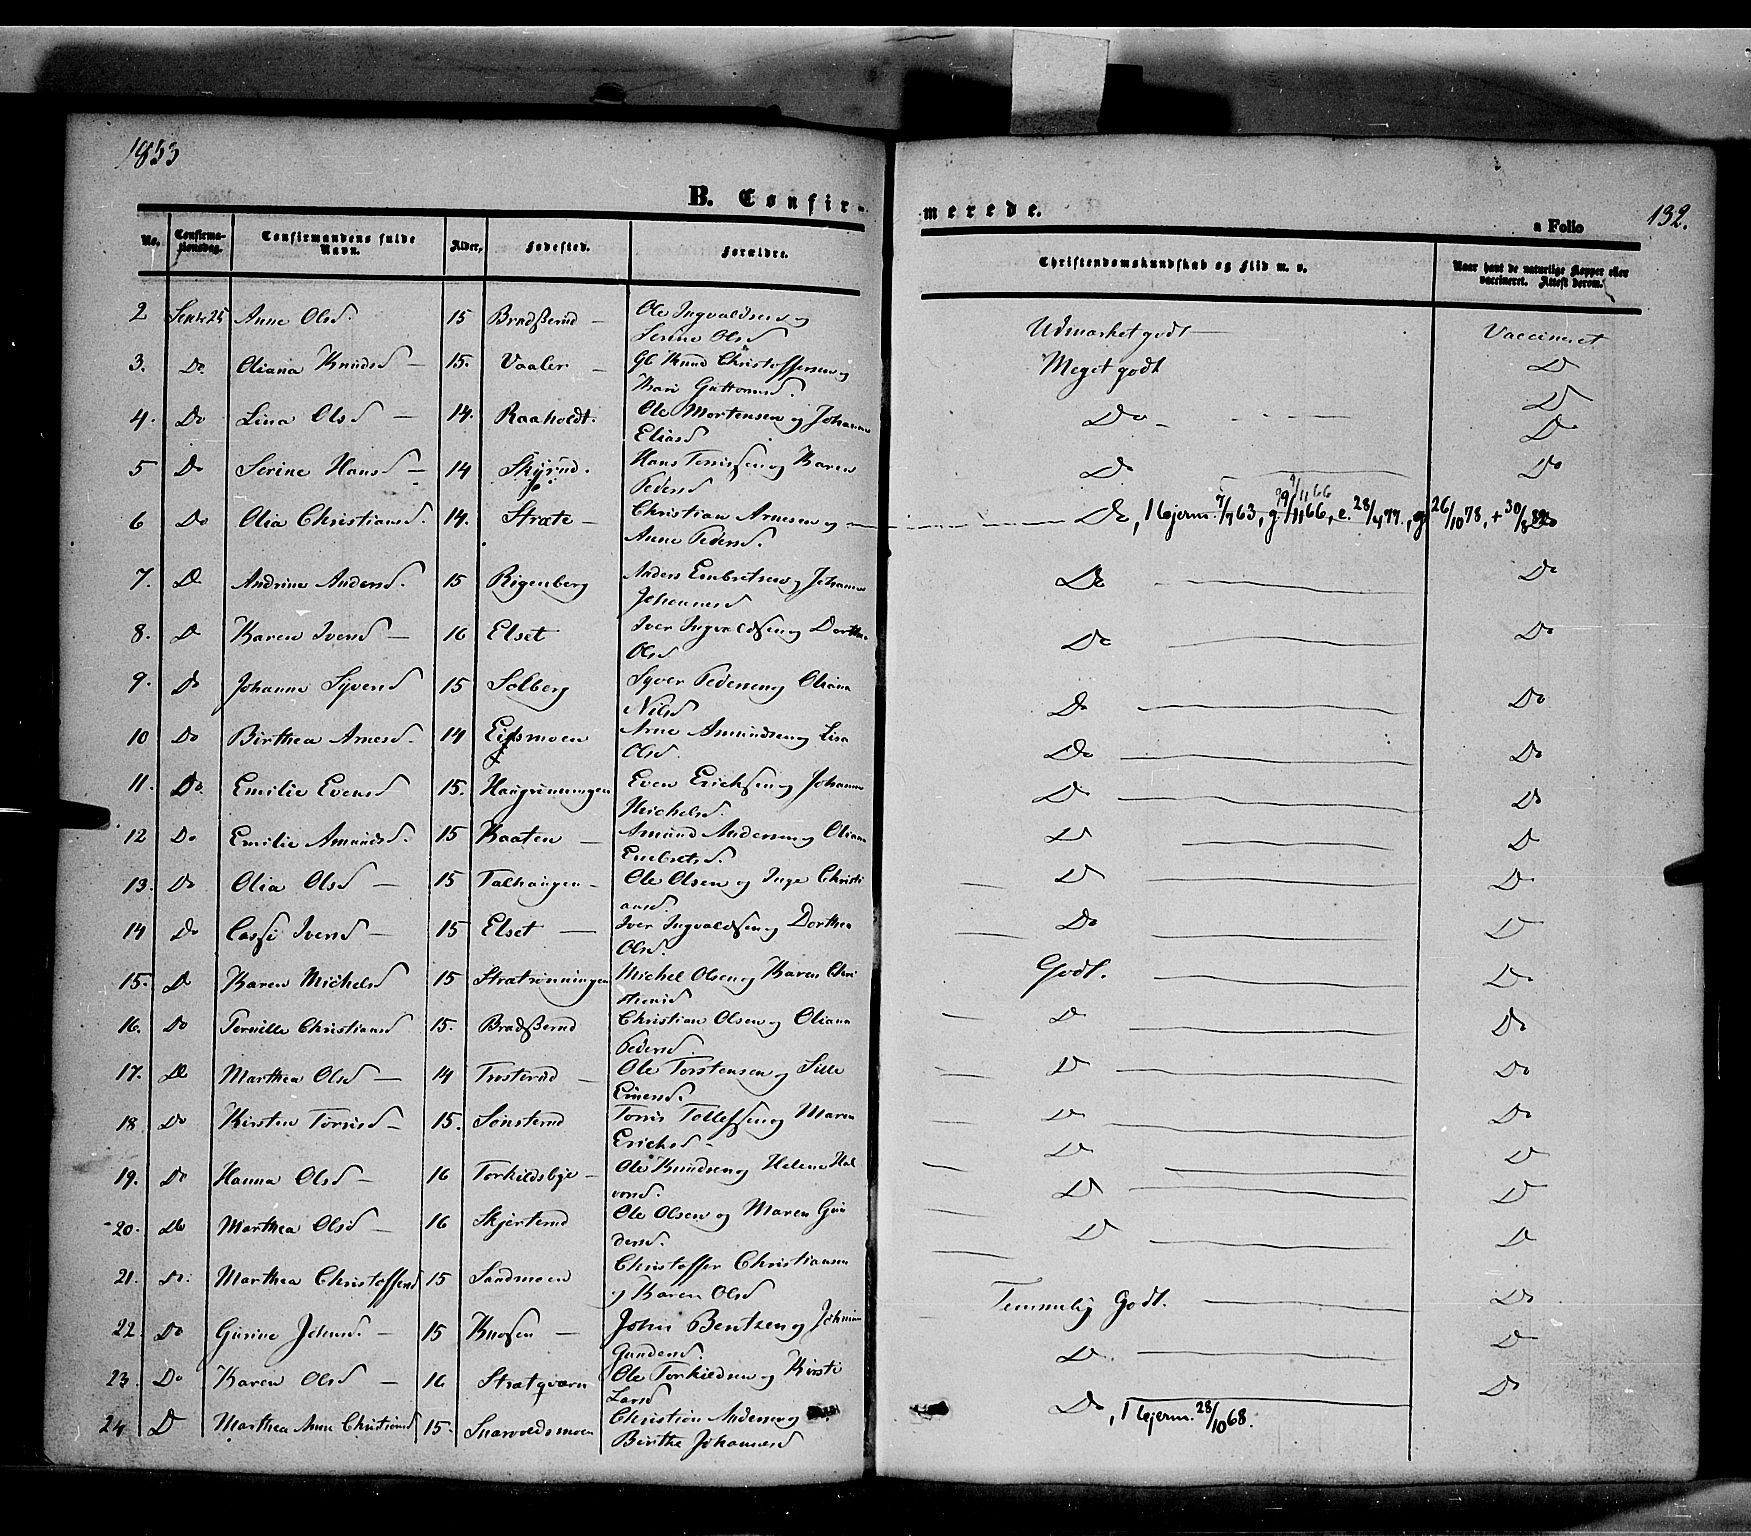 1853
B. Confir-
merede.
a Folio
132.
No.
Confirma-
tionsdag.
Confirmandens fulde
Navn.
Alder.
Fødested.
Forældre.
Christendomskundskab og Flid m. v.
Naar havt de naturlige Kopper eller
vaccineret. Attest derom.
2 25 Anne Olsd. 15 Ole Ingvaldsen og
Olsd Udmærket godt Vaccineret
3. Do. Oliana Knudsd 15. Vaaler Knud Christoffersen og
Kari Guttormsd. Meget godt Do
4. Do Lina Olsd 14. Raaholdt. Ole Mortensen og Johanne
Eliasd Do Do
Do
5 Do Serine Hansd 14 Skyrud. Hans og Karen
Pedersd Do Do
6 Do Olia Christiansd. 14. Stræte Christian Arnesen og
Anne Pedersd. Do, 1 hjem. 7/7 63, 9/11 66, e. 28/4 77, og 26/10 78, + 30/8 Do
7. Do Andrine Andersd. 15 Rigenberg Anders Embretsen og Johanne
Johannesd Do Do
8. Do Karen Iversd 16 Elset Iver Ingvaldsen og Dorthea
Olsd Do Do
9. Do Johanne Syversd 15 Solberg Syver Pedersen og Oliana
Nilsd Do Do
10 Do Birthea Arnesd. 14 Eidsmoen Arne Amundsen og Lisa
Olsd. Do Do
11. Do. Emilie Evensd 15. Haugrønningen Even Ericksen og Johanne
Michelsd. Do Do
12 Do Emilie Amundsd. 15 Kaaten Amund Andersen og Oliana
Embretsd. Do Do
13. Do Olia Olsd 15 Ole Olsen og Inge Christi
ansd. Do Do
14 Do Iversd 15 Elset Iver Ingvaldsen og Dorthea
Olsd. Do Do
15. Do Karen Michelsd 15 Strætrønningen Michel Olsen og Karen Chri
stiansd Godt. Do
16. Do Pernille Christiansd 15. Christian Olsen og Oliana
Pedersd. Do Do
17. Do Marthea Olsd 14 Trosterud Ole Torstensen og Sille
Do Do
18 Do Kirsten Torrisd 15. Sønsterud Torris Tollefsen og Maren
Ericksd Do Do
19. Do Hanna Olsd 16 Torkildsbye Ole Knudsen og Helene Hal
vorsd. Do Do
20. Do Marthea Olsd 16 Skjerterud Ole Olsen og Maren Gun
dersd. Do Do
21. Do. Marthea Christoffersd 15 Sandmoen Christoffer Christiansen
og Karen Olsd Do Do
22. Do Gurine Johnsd. 15 John Bentzen og
Gundersd. Temmelig Godt. Do
23. Do Karen Olsd 16 Strætqværn Ole Torkildsen og Kirsti
Larsd Do. Do
24 Do Marthea Anne Christiansd 15. Christian Andersen og
Birthe Johannesd Do, 1 hjem. 28/10 68. Do